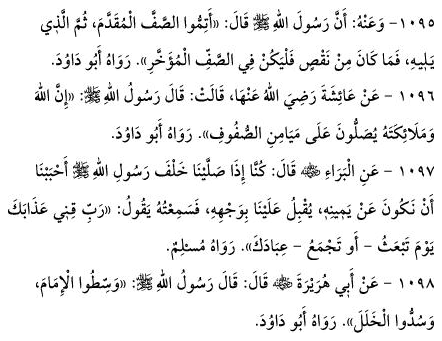 ١٠٩٥- وَعَنْهُ: أَنَّ رَسُولَ اللهِ ﷺ قَالَ: «أَتِمُّوا الصَّفَّ الْمُقَدَّمَ، ثُمَّ الَّذِي
يَلِيهِ، فَمَا كَانَ مِنْ نَقْصٍ فَلْيَكُنْ فِي الصَّفِّ الْمُؤَخَّرِ». رَوَاهُ أَبُو دَاوُدَ.
١٠٩٦ - عَنْ عَائِشَةَ رَضِيَ اللهُ عَنْهَا، قَالَتْ: قَالَ رَسُولُ اللهِ ﷺ: «إِنَّ اللهَ
وَمَلَائِكَتَهُ يُصَلُّونَ عَلَى مَيَامِنِ الصُّفُوفِ». رَوَاهُ أَبُو دَاوُدَ.
١٠٩٧ - عَنِ الْبَرَاءِ ﵁ قَالَ: كُنَّا إِذَا صَلَّيْنَا خَلْفَ رَسُولِ اللهِ ﷺ أَحْبَبْنَا
أَنْ نَكُونَ عَنْ يَمِينِهِ، يُقْبِلُ عَلَيْنَا بِوَجْهِهِ، فَسَمِعْتُهُ يَقُولُ: «رَبِّ قِنِي عَذَابَكَ
يَوْمَ تَبْعَثُ - أَوْ تَجْمَعُ - عِبَادَكَ». رَوَاهُ مُسْلِمٌ.
١٠٩٨ - عَنْ أَبِي هُرَيْرَةَ ﵁ قَالَ: قَالَ رَسُولُ اللهِ ﷺ: «وَسِّطُوا الْإِمَامَ،
وَسُدُّوا الْخَلَلَ». رَوَاهُ أَبُو دَاوُدَ.